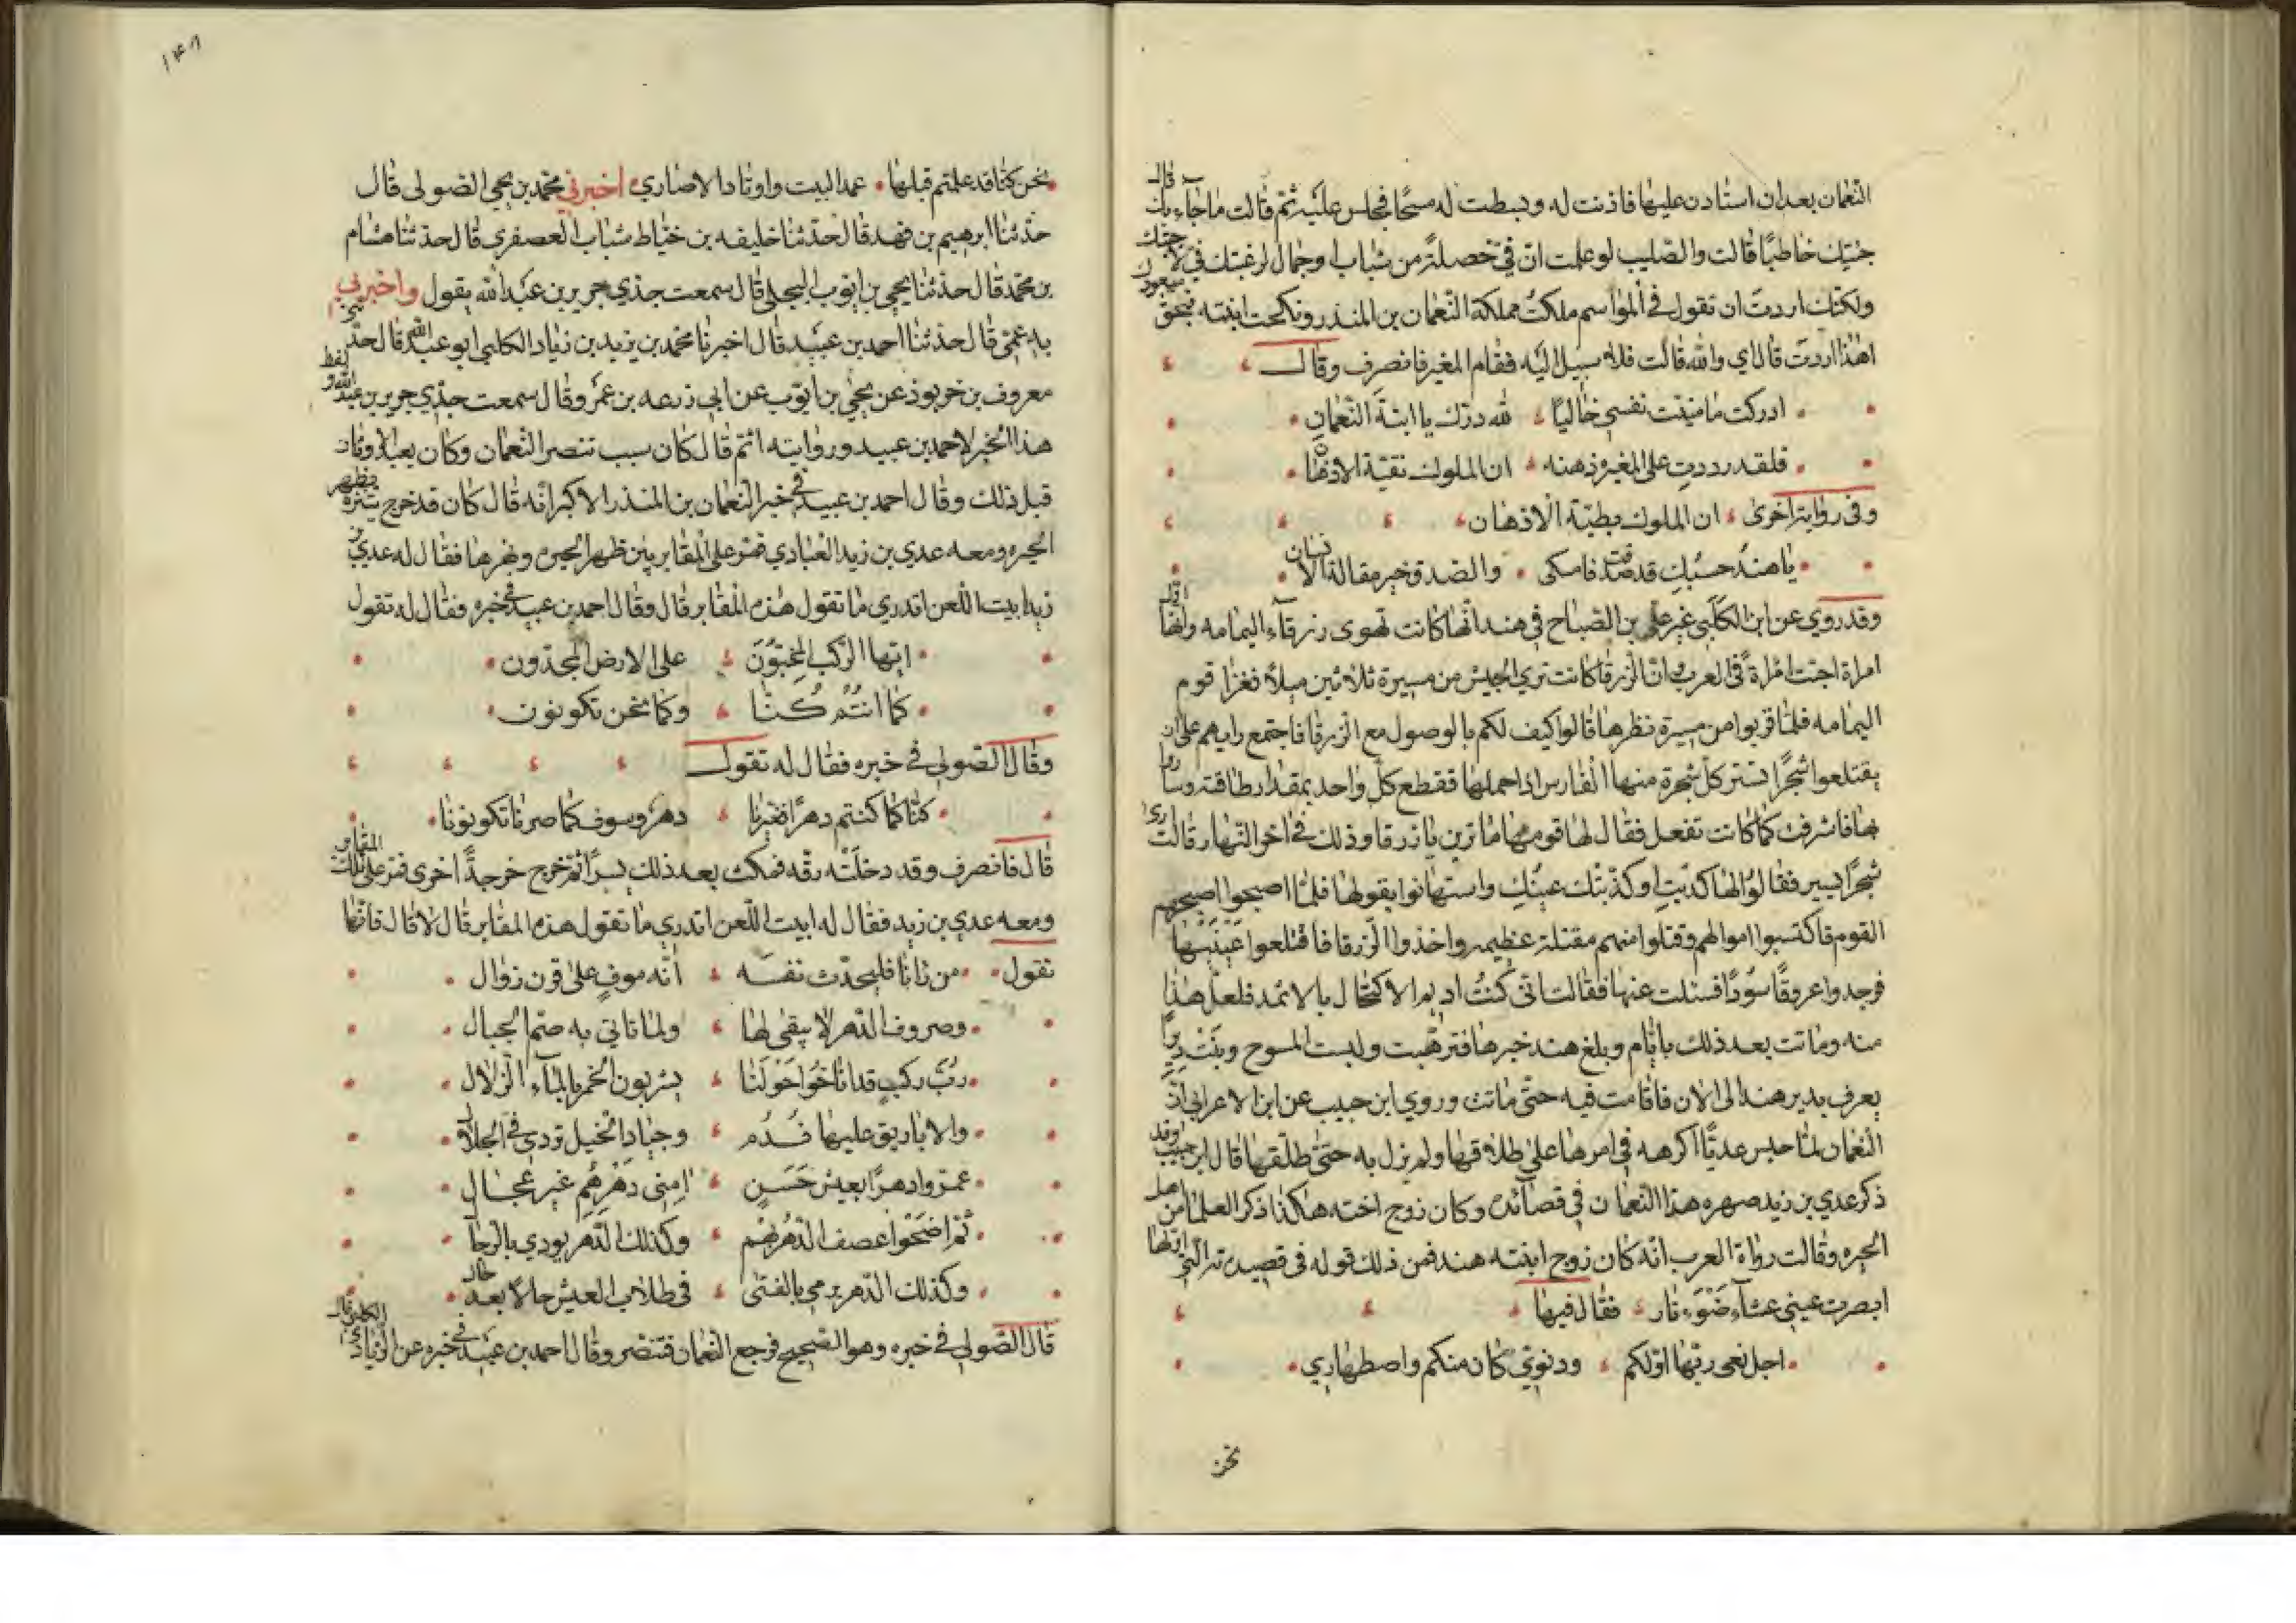 النعمان بعد ان استاذن عليها فاذنت له وبسطت له مسحًا فجلس عليه ثم قالت ما جاء بك قال
جئتك خاطبًا قالت والصليب لو علمت ان فيّ خصلة من شباب او جمال لرغبتك في لاجبتك
ولكنك اردت ان تقول في المواسم ملكت مملكة النعمان بن المنذر ونكحت ابنته فبحق معبودك
اهذا اردت قال اي والله قالت فلا سبيل اليه فقام المغيره فانصرف وقال
ادركت ما منيت نفسي خاليًا لله درّك يا ابنة النعمان
فلقد رددتِ على المغيره ذهنه ان الملوك نقيّة الاذهان
وفى رواية اخرى ان الملوك بطيّة الاذهان
يا هند حسبك قد صدقت فامسكى والصدق خير مقالة الانسان
وقد روي عن ابن الكلبي غير علي بن الصباح في هند انها كانت تهوى زرقآء اليمامه وانها اول
امراة احبت امراة في العرب وان الزرقا كانت ترى الجيش من مسيرة ثلاثين ميلاً فغزا قوم
اليمامه فلما قربوا من مسيرة نظرها قالوا كيف لكم بالوصول مع الزرقا فاجتمع رايهم على ان
يقتلعوا شجرًا تستر كل شجرة منها الفارس اذا حملها فقطع كل واحد بمقدار طاقته وساروا
بها فاشرفت كما كانت تفعل فقال لها قومها ما ترين يا زرقا وذلك في اخر النهار قالت ارى
شجرًا يسير فقالوا لها كذبتِ او كذبتك عينك واستهانوا بقولها فلما اصبحوا اصبحهم
القوم فاكتسبوا اموالهم وقتلوا منهم مقتلة عظيمه واخذوا الزرقا فاقتلعوا عينيها
فوجدوا عروقًا سودًا فسئلت عنها فقالت انى كنت اديم الاكتحال بالاثمد فلعل هذا
منه وماتت بعد ذلك بايام وبلغ هند خبرها فترهبت ولبست المسوح وبنت ديرًا
يعرف بدير هند الى الان فاقامت فيه حتى ماتت وروي ابن حبيب عن ابن الاعرابي ان
النعمان لما حبس عديًا اكرهه في امرها على طلاقها ولم يزل به حتى طلقها قال ابن حبيب وقد
ذكر عدي بن زيد صهره هذا النعمان في قصائده وكان زوج اخته هكذا ذكر العلما من اهل
الحيره وقالت رواة العرب انه كان زوج ابنته هند فمن ذلك قوله فى قصيدته التي اولها
ابصرت عيني عشآء ضوء نار فقال فيها
اجل نعمى ربّها اولكم ودنوّي كان منكم واصطهاري
نحن
١٤٨
نحن كنا قد علمتم قبلها عمد البيت واوتاد الاصاري اخبرني محمد بن يحيى الصولى قال
حدثنا ابرهيم بن فهد قال حدثنا خليفه بن خياط شباب العصفرى قال حدثنا هشام
بن محمد قال حدثنا يحيى بن ايوب البجلى قال سمعت جدي جرير بن عبد الله يقول واخبرني
به عمى قال حدثنا احمد بن عبيد قال اخبرنا محمد بن يزيد بن زياد الكلبي ابو عبد الله قال حدثنى
معروف بن خربوذ عن يحيى بن ايوب عن ابي زرعه بن عمرو قال سمعت جدي جرير بن عبد الله ولفظ
هذا الخبر لاحمد بن عبيد وروايته اتم قال كان سبب تنصر النعمان وكان يعبد الاوثان
قبل ذلك وقال احمد بن عبيد في خبره النعمان بن المنذر الاكبر انه قال كان قد خرج يتنزه بظهر
الحيره ومعه عدي بن زيد العبادي فمر على المقابر بين ظهر الحيره ونهرها فقال له عدي بن
زيد ابيت اللعن اتدري ما تقول هذه المقابر قال وقال احمد بن عبيد في خبره فقال له تقول
ايها الركب المخبّون على الارض المجدّون
كما انتم كنا وكما نحن تكونون
وقال الصولي في خبره فقال له تقول
كنا كما كنتم دهرًا فغيرنا دهر وسوف كما صرنا تكونونا
قال فانصرف وقد دخلته رقه فمكث بعد ذلك يسيرًا ثم خرج خرجةً اخرى فمر على تلك المقابر
ومعه عدي بن زيد فقال له ابيت اللعن اتدري ما تقول هذه المقابر قال لا قال فانها
تقول من رآنا فليحدّث نفسه انه موفٍ على قرن زوال
وصروف الدهر لا يبقى لها ولما تاتي به صمّ الجبال
ربّ ركبٍ قد اناخوا حولنا يشربون الخمر بالمآء الزلال
والاباريق عليها فُدُم وجياد الخيل تردي في الجلال
عمروا دهرًا بعيش حَسَن امنى دهرهم غير عجال
ثم اضحوا عصف الدهر بهم وكذلك الدهر يودي بالرجال
وكذلك الدهر يرمي بالفتى في طلاب العيش حالا بعد حال
قال الصولي في خبره وهو الصحيح فرجع النعمان فتنصر وقال احمد بن عبيد في خبره عن الزيادي الكلبي قال